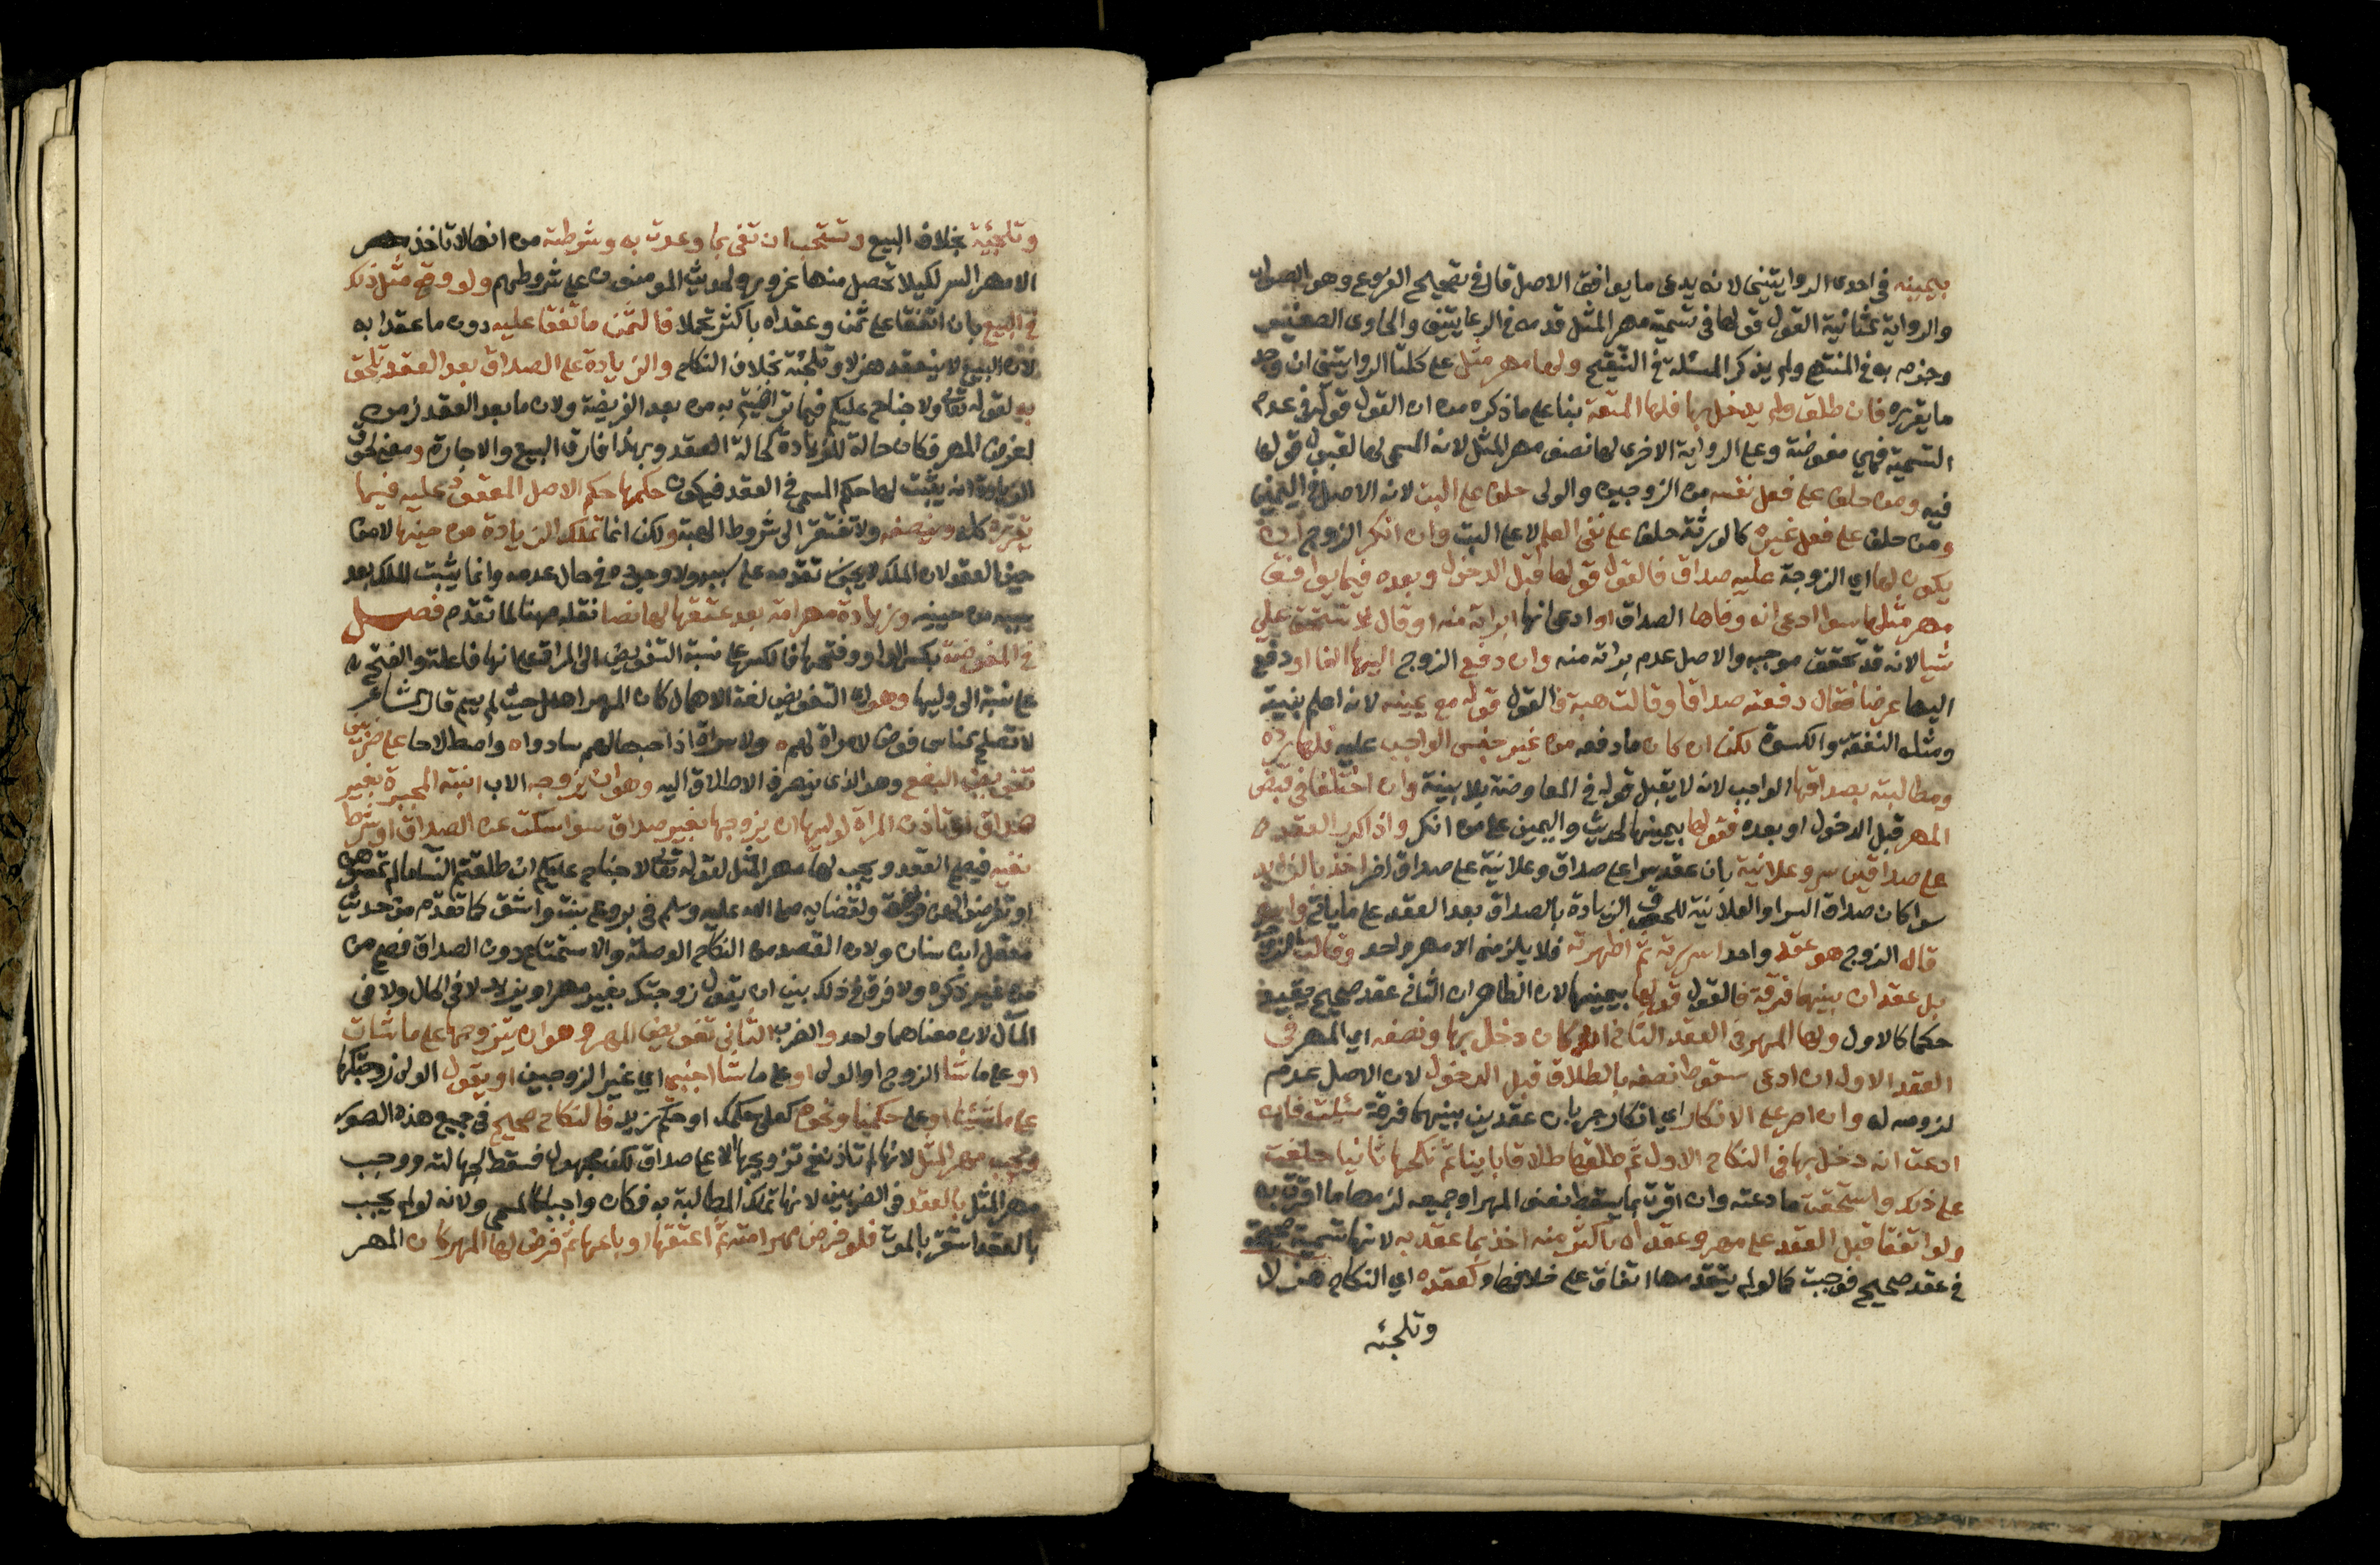 بيمينه في احدى الروايتين لانه يدعى ما يوافق الاصل قال في تصحيح الفروع وهو الصواب
والرواية الثانية القول قولها في تسمية مهر المثل قدمه في الرعايتين والحاوى الصغير
وجزم به في المنتهى ولم يذكر المسئلة في التنقيح ولها مهر مثل على كلتا الروايتين ان وجد
ما يقرره فان طلق ولم يدخل بها فلها المتعة بنا على ما ذكره من ان القول قوله في عدم
التسمية فهي مفوضة وعلى الرواية الاخرى لها نصف مهر المثل لانه المسمى لها لقبول قولها
فيه ومن حلف على فعل نفسه من الزوجين والولى حلف على البت لانه الاصل في اليمين
ومن حلف على فعل غيره كالورثة حلف على نفى العلم لا على البت وان انكر الزوج ان
يكون لها اي الزوجة عليه صداق فالقول قولها قبل الدخول وبعده فيما يوافق
مهر مثلها سوا ادعى انه وفاها الصداق او ادعى انها ابراته منه او قال لا تستحق علي
شيا لانه قد تحقق موجبه والاصل عدم براته منه وان دفع الزوج اليها الفا او دفع
اليها عرضا فقال دفعته صداقا وقالت هبة فالقول قوله مع يمينه لانه اعلم بنيته
ومثله النفقة والكسوة لكن ان كان ما دفعه من غير جنس الواجب عليه فلها رده
ومطالبته بصداقها الواجب لانه لا يقبل قوله في المعاوضة بلا بينة وان اختلفا في قبض
المهر قبل الدخول او بعده فقولها بيمينها لحديث واليمين على من انكر واذا كرر العقد
على صداقين سر وعلانية بان عقد سرا على صداق وعلانية على صداق اخر اخذ بالزايد
سوا كان صداق السر او العلانية للحوق الزيادة بالصداق بعد العقد على ما ياتي وان
قال الزوج هو عقد واحد اسررته ثم اظهرته فلا يلزمني الا مهر واحد وقالت الزوجة
بل عقدان بينهما فرقة فالقول قولها بيمينها لان الظاهر ان الثاني عقد صحيح يفيد
حكما كالاول ولها المهر في العقد الثاني ان كان دخل بها ونصفه اي المهر في
العقد الاول ان ادعى سقوط نصفه بالطلاق قبل الدخول لان الاصل عدم
لزومه له وان اصر على الانكار اي انكار جريان عقدين بينهما فرقة سئلت فان
ادعت انه دخل بها في النكاح الاول ثم طلقها طلاقا باينا ثم نكحها ثانيا حلفت
على ذلك واستحقت ما ادعته وان اقرت بما يسقط نصف المهر او جميعه لزمها ما اقرت به
ولو اتفقا قبل العقد على مهر وعقداه باكثر منه اخذ بما عقد به لانها تسمية صحيحة
في عقد صحيح فوجبت كما لو لم يتقدمها اتفاق على خلافها وكعقده اي النكاح هزلا
وتلجئه
وتلجئة بخلاف البيع وتستحب ان تفي بما وعدت به وشرطته من انها لا تاخذ
الا مهر السر لكيلا تحصل منها غرور ولحديث المومنون على شروطهم ولو وقع مثل ذلك
في البيع بان اتفقا على ثمن وعقداه باكثر تجملا فالثمن ما اتفقا عليه دون ما عقدا به
لان البيع لا ينعقد هزلا وتلجئة بخلاف النكاح والزيادة على الصداق بعد العقد تلحق
به لقوله تعالى ولا جناح عليكم فيما تراضيتم به من بعد الفريضة ولان ما بعد العقد زمن
لفرض المهر فكان حالة للزيادة كحالة العقد وبهذا فارق البيع والاجارة ومعنى لحوق
الزيادة انه يثبت لها حكم المسمى في العقد فيكون حكمها حكم الاصل المعقود عليه فيما
يقرره كله وينصفه ولا تفتقر الى شروط الهبة ولكن انما تملك الزيادة من حينها لا من
حين العقد لان الملك لا يجوز تقدمه على سببه ولا وجوده في حال عدمه وانما يثبت الملك بعد
سببه من حينيه وزيادة مهر امة بعد عتقها لها نصا نقله مهنا لما تقدم فصل
في المفوضة بكسر الواو وفتحها فالكسر على نسبة التفويض الى المراة على انها فاعلة والفتح
على نسبته الى وليها وهو اي التفويض لغة الاهمال كان المهر اهمل حيث لم يسم قال الشاعر
لا تصلح الناس فوضى لا سراة لهم ولا سراة اذا جهالهم سادوا واصطلاحا على ضربين
تفويض البضع وهو الذي ينصرف الاطلاق اليه وهو ان يزوجه الاب ابنته المجبرة بغير
صداق او تاذن المراة لوليها ان يزوجها بغير صداق سوا سكت عن الصداق او شرط
نفيه فيصح العقد ويجب لها مهر المثل لقوله تعالى لا جناح عليكم ان طلقتم النسا ما لم تمسوهن
او تفرضوا لهن فريضة ولقضايه صلى الله عليه وسلم في بروع بنت واشق كما تقدم من حديث
معقل ابن سنان ولان القصد من النكاح الوصلة والاستمتاع دون الصداق فصح من
من غير ذكره ولا فرق في ذلك بين ان يقول زوجتك بغير مهر او يزيد لا في الحال ولا في
المآل لان معناهما واحد والضرب الثاني تفويض المهر وهو ان يتزوجها على ما شات
او على ما شا الزوج او الولى او على ما شا اجنبي اي غير الزوجين او يقول الولى زوجتكها
على ما شئنا او على حكمنا ونحوه كعلى حكمك او حكم زيد فالنكاح صحيح في جميع هذه الصور
ويجب مهر المثل لانها لم تاذن في تزويجها الا على صداق لكنه مجهول فسقط لجهالته ووجب
مهر المثل بالعقد في الضربين لانها تملك المطالبة به فكان واجبا كالمسمى ولانه لو لم يجب
بالعقد لما استقر بالموت فلو فرض مهر امته ثم اعتقها او باعها ثم فرض لها المهر كان المهر